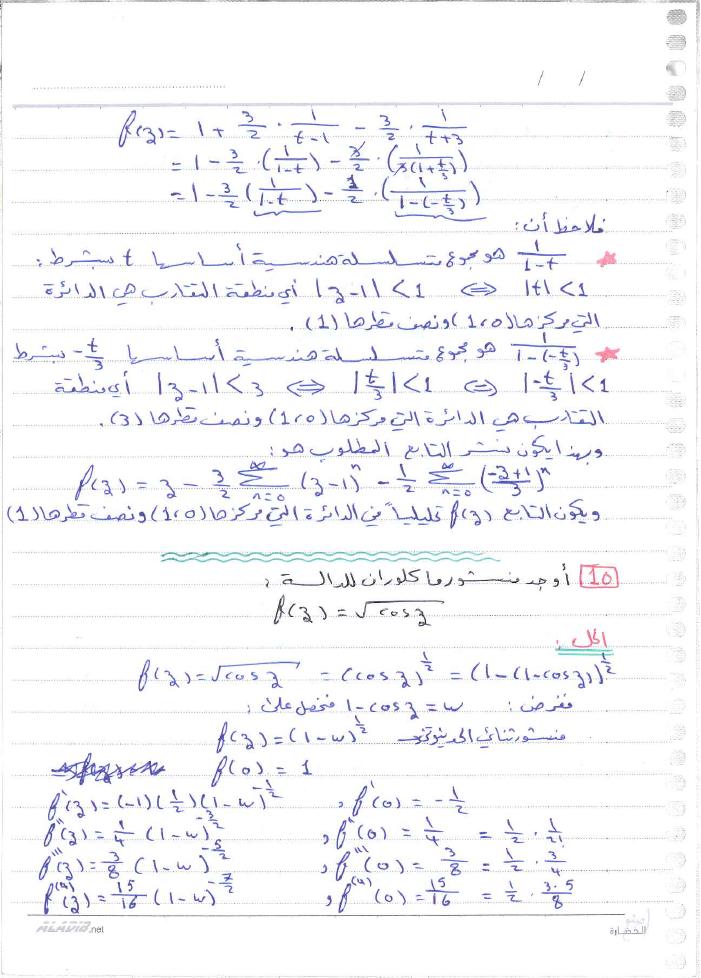 / /
f(z) = 1 + 3/2 · 1/(t-1) - 3/2 · 1/(t+3)
= 1 - 3/2 · (1/(1-t)) - 3/2 · (1/(3(1+t/3)))
= 1 - 3/2 (1/(1-t)) - 1/2 · (1/(1-(-t/3)))
فلاحظ أن:
1/(1-t) هو مجموع متسلسلة هندسية أساسها t بشرط:
|t| < 1 ⟺ |z-1| < 1 أي منطقة التقارب هي الدائرة
التي مركزها (1,0) ونصف قطرها (1).
1/(1-(-t/3)) هو مجموع متسلسلة هندسية أساسها -t/3 بشرط
|-t/3| < 1 ⟺ |t/3| < 1 ⟺ |z-1| < 3 أي منطقة
التقارب هي الدائرة التي مركزها (1,0) ونصف قطرها (3).
وبهذا يكون نشر التابع المطلوب هو:
f(z) = z - 3/2 ∑_{n=0}^{∞} (z-1)^n - 1/2 ∑_{n=0}^{∞} ((-z+1)/3)^n
ويكون التابع f(z) تحليلياً في الدائرة التي مركزها (1,0) ونصف قطرها (1)
10 أوجد منشور ماكلوران للدالة:
f(z) = √cos z
الحل:
f(z) = √cos z = (cos z)^{1/2} = (1-(1-cos z))^{1/2}
نفرض: 1-cos z = w فنحصل على:
f(z) = (1-w)^{1/2} منشور ثنائي الحد نيوتن
f(0) = 1
f'(z) = (-1)(1/2)(1-w)^{-1/2} , f'(0) = -1/2
f''(z) = 1/4 (1-w)^{-3/2} , f''(0) = 1/4 = 1/2 · 1/2!
f'''(z) = 3/8 (1-w)^{-5/2} , f'''(0) = 3/8 = 1/2 · 3/4
f^{(4)}(z) = 15/16 (1-w)^{-7/2} , f^{(4)}(0) = 15/16 = 1/2 · 3·5/8
ALADIB.net
الحضارة